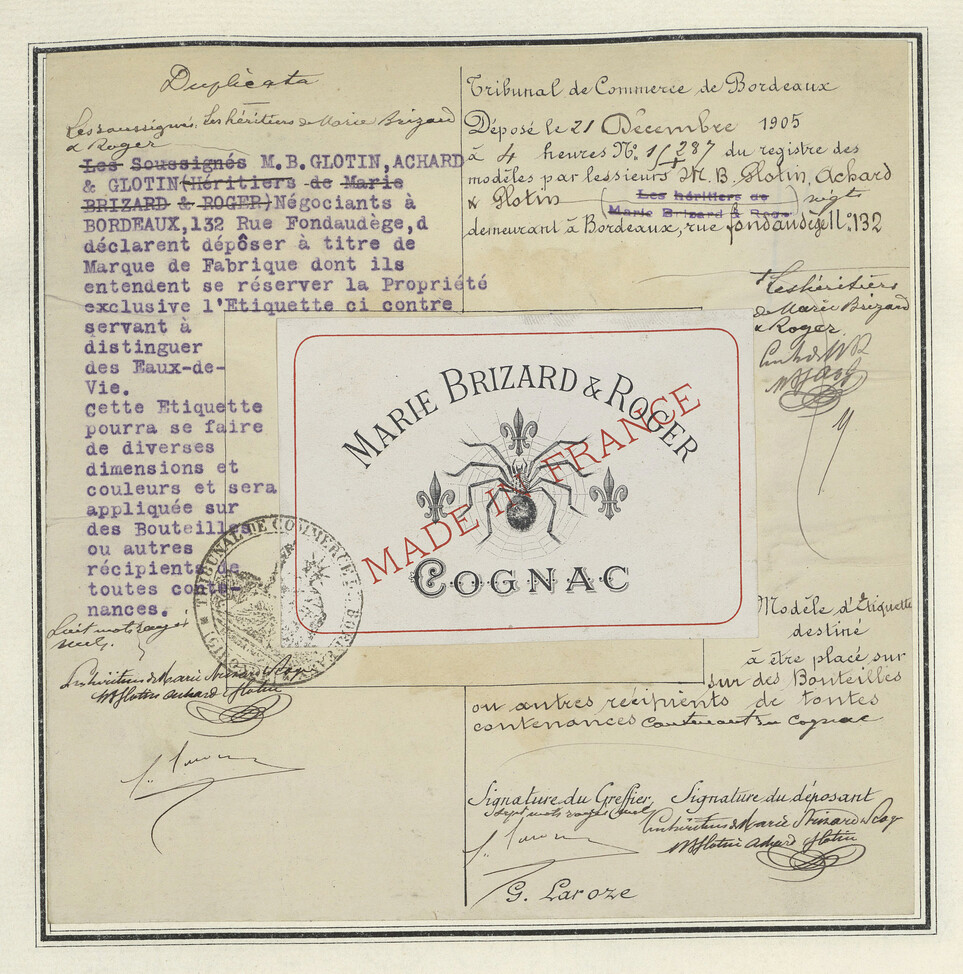 Duplicata
Les soussignés, Les héritiers de Marie Brizard
& Roger
Les Soussignés M.B.GLOTIN,ACHARD
& GLOTIN(Héritiers de Marie
BRIZARD & ROGER)Négociants à
BORDEAUX,132 Rue Fondaudège,d
déclarent dépôser à titre de
Marque de Fabrique dont ils
entendent se réserver la Propriété
exclusive l'Etiquette ci contre
servant à
distinguer
des Eaux-de-
Vie.
Cette Etiquette
pourra se faire
de diverses
dimensions et
couleurs et sera
appliquée sur
des Bouteilles
ou autres
récipients de
toutes conte-
nances.
huit mots rayés
nuls.
Les héritiers de Marie Brizard & Roger
MB Glotin Achard & Glotin
Tribunal de Commerce de Bordeaux
Déposé le 21 Décembre 1905
à 4 heures No 287 du registre des
modèles par les sieurs M. B. Glotin, Achard
& Glotin (Les héritiers de
Marie Brizard & Roger) négts
demeurant à Bordeaux, rue fondaudège No 132
+ Les héritiers
de Marie Brizard
& Roger.
MARIE BRIZARD & ROGER
MADE IN FRANCE
COGNAC
TRIBUNAL DE COMMERCE
Modèle d'Etiquette
destiné
à être placé sur
sur des Bouteilles
ou autres récipients de toutes
contenances contenant du cognac
Signature du Greffier Signature du déposant
sept mots rayés nuls
Les héritiers de Marie Brizard & Roger
MB Glotin Achard & Glotin
G. Laroze